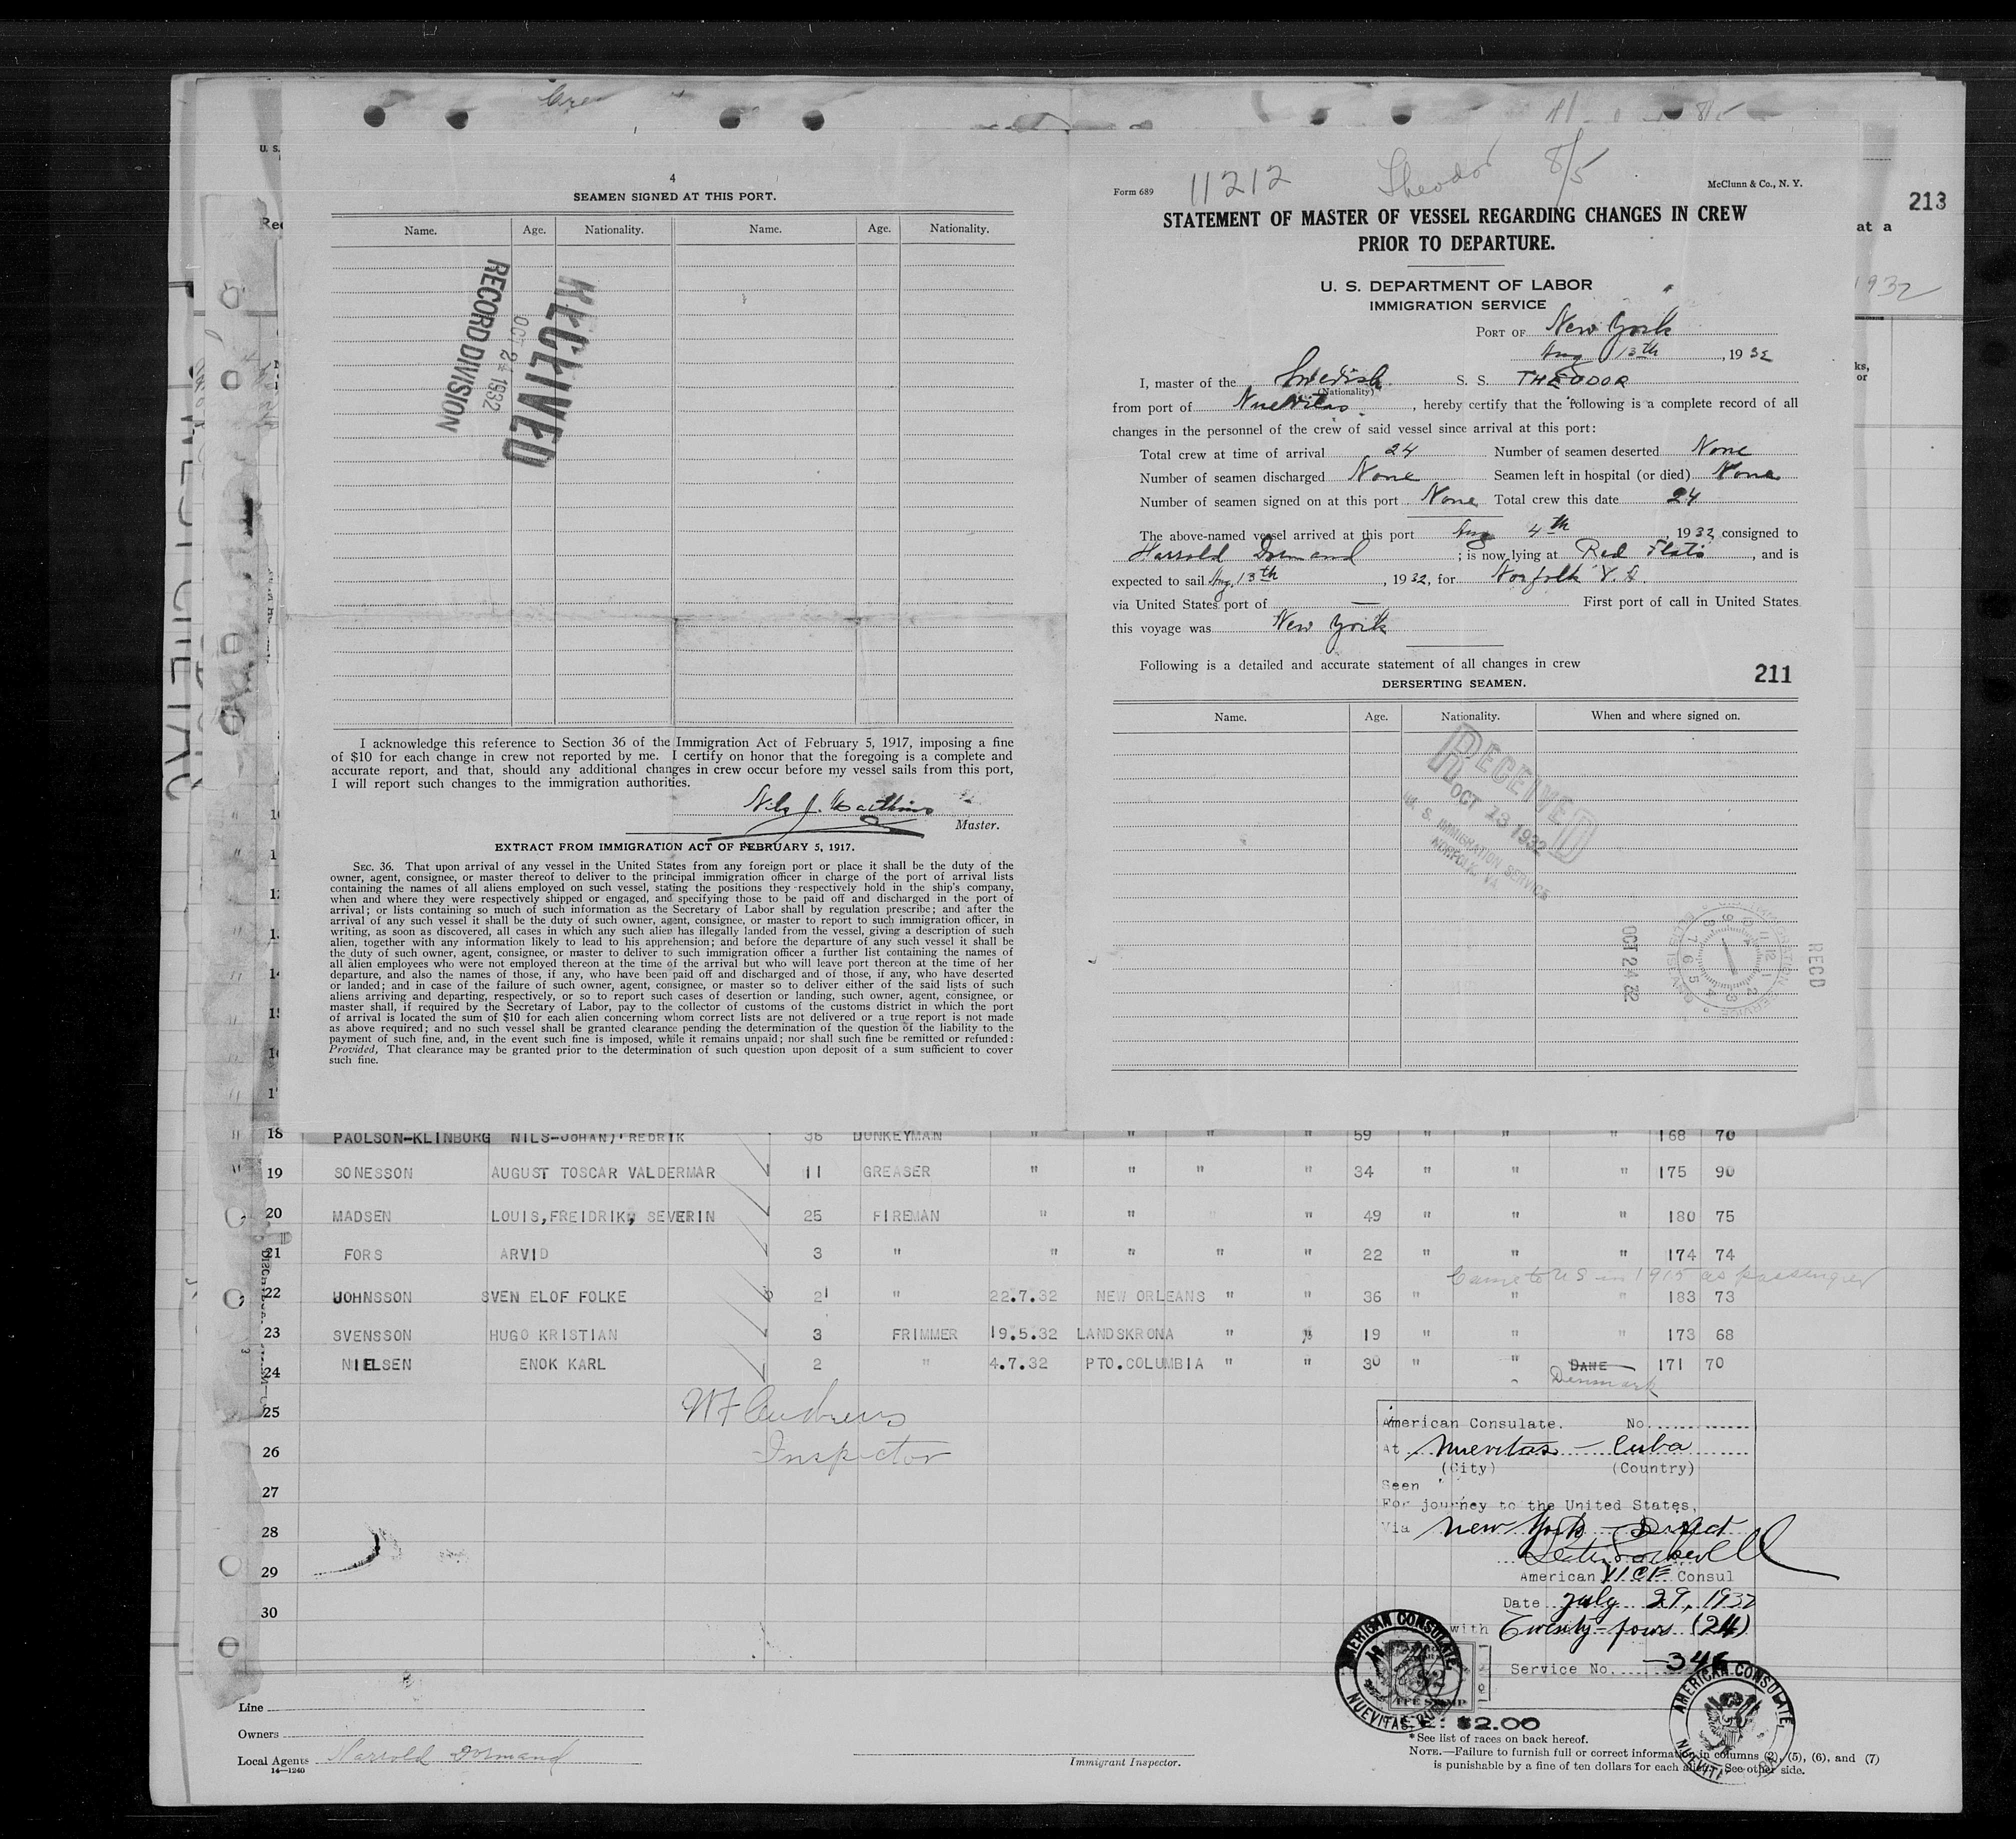 4
SEAMEN SIGNED AT THIS PORT.
Name. Age. Nationality. Name. Age. Nationality.
RECEIVED
OCT 24 1932
RECORD DIVISION
I acknowledge this reference to Section 36 of the Immigration Act of February 5, 1917, imposing a fine
of $10 for each change in crew not reported by me. I certify on honor that the foregoing is a complete and
accurate report, and that, should any additional changes in crew occur before my vessel sails from this port,
I will report such changes to the immigration authorities.
Nils J.
Master.
EXTRACT FROM IMMIGRATION ACT OF FEBRUARY 5, 1917.
SEC. 36. That upon arrival of any vessel in the United States from any foreign port or place it shall be the duty of the
owner, agent, consignee, or master thereof to deliver to the principal immigration officer in charge of the port of arrival lists
containing the names of all aliens employed on such vessel, stating the positions they respectively hold in the ship's company,
when and where they were respectively shipped or engaged, and specifying those to be paid off and discharged in the port of
arrival; or lists containing so much of such information as the Secretary of Labor shall by regulation prescribe; and after the
arrival of any such vessel it shall be the duty of such owner, agent, consignee, or master to report to such immigration officer, in
writing, as soon as discovered, all cases in which any such alien has illegally landed from the vessel, giving a description of such
alien, together with any information likely to lead to his apprehension; and before the departure of any such vessel it shall be
the duty of such owner, agent, consignee, or master to deliver to such immigration officer a further list containing the names of
all alien employees who were not employed thereon at the time of the arrival but who will leave port thereon at the time of her
departure, and also the names of those, if any, who have been paid off and discharged and of those, if any, who have deserted
or landed; and in case of the failure of such owner, agent, consignee, or master so to deliver either of the said lists of such
aliens arriving and departing, respectively, or so to report such cases of desertion or landing, such owner, agent, consignee, or
master shall, if required by the Secretary of Labor, pay to the collector of customs of the customs district in which the port
of arrival is located the sum of $10 for each alien concerning whom correct lists are not delivered or a true report is not made
as above required; and no such vessel shall be granted clearance pending the determination of the question of the liability to the
payment of such fine, and, in the event such fine is imposed, while it remains unpaid; nor shall such fine be remitted or refunded:
Provided, That clearance may be granted prior to the determination of such question upon deposit of a sum sufficient to cover
such fine.
Form 689 11212 Theodor 8/5 McClunn & Co., N. Y.
213
STATEMENT OF MASTER OF VESSEL REGARDING CHANGES IN CREW
PRIOR TO DEPARTURE.
at a
U. S. DEPARTMENT OF LABOR
IMMIGRATION SERVICE
1932
PORT OF New York
Aug 13th, 1932
I, master of the Swedish S. S. THEODOR
(Nationality)
from port of Nuevitas, hereby certify that the following is a complete record of all
changes in the personnel of the crew of said vessel since arrival at this port:
Total crew at time of arrival 24 Number of seamen deserted None
Number of seamen discharged None Seamen left in hospital (or died) None
Number of seamen signed on at this port None Total crew this date 24
The above-named vessel arrived at this port Aug 4th, 1932 consigned to
Harrold Dormand; is now lying at Red Flats, and is
expected to sail Aug 13th, 1932, for Norfolk V.A.
via United States port of — First port of call in United States
this voyage was New York
Following is a detailed and accurate statement of all changes in crew
211
DERSERTING SEAMEN.
Name. Age. Nationality. When and where signed on.
RECEIVED
OCT 13 1932
U. S. IMMIGRATION SERVICE
NORFOLK, VA
OCT 24 32
RECD
18 PAOLSON-KLINBORG NILS-JOHAN, FREDRIK 36 DUNKEYMAN " " " " 59 " " " 168 70
19 SONESSON AUGUST TOSCAR VALDERMAR 11 GREASER " " " " 34 " " " 175 90
20 MADSEN LOUIS, FREIDRIK, SEVERIN 25 FIREMAN " " " 49 " " " 180 75
21 FORS ARVID 3 " " " " " 22 " " " 174 74
Came to US in 1915 as passenger
22 JOHNSSON SVEN ELOF FOLKE 21 " 22.7.32 NEW ORLEANS " " 36 " " " 183 73
23 SVENSSON HUGO KRISTIAN 3 FRIMMER 19.5.32 LANDSKRONA " " 19 " " " 173 68
24 NIELSEN ENOK KARL 2 " 4.7.32 PTO.COLUMBIA " " 30 " " DANE 171 70
Denmark
25 W F Andrews
26 Inspector
27
28
29
30
American Consulate. No.
At Nuevitas - Cuba
(City) (Country)
Seen
For journey to the United States,
Via New York - Direct
American VICE Consul
Date July 29, 1932
with Twenty-four (24)
Service No. -346
AMERICAN CONSULATE,
NUEVITAS, CUBA
FEE STAMP
$2.00
AMERICAN CONSULATE,
Line
Owners
Local Agents Harrold Dormand
14-1240
Immigrant Inspector.
* See list of races on back hereof.
NOTE.—Failure to furnish full or correct information in columns (2), (5), (6), and (7)
is punishable by a fine of ten dollars for each alien. See other side.